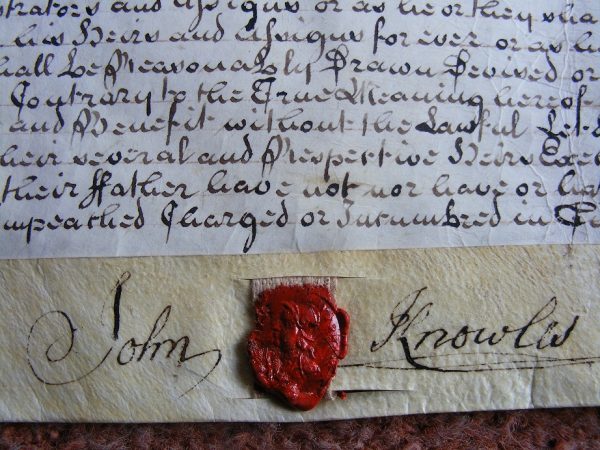 strators and Assigns or as he or they sha
his Heirs and Assigns for ever or as h
hall be Reasonably Drawn Devised or
Contrary to the True Meaning hereof
and Benefit without the Lawful Let
heir several and Respective Heirs Exec
their ffather have not nor have or ha
mpeached Charged or Incumbred in
John Knowles